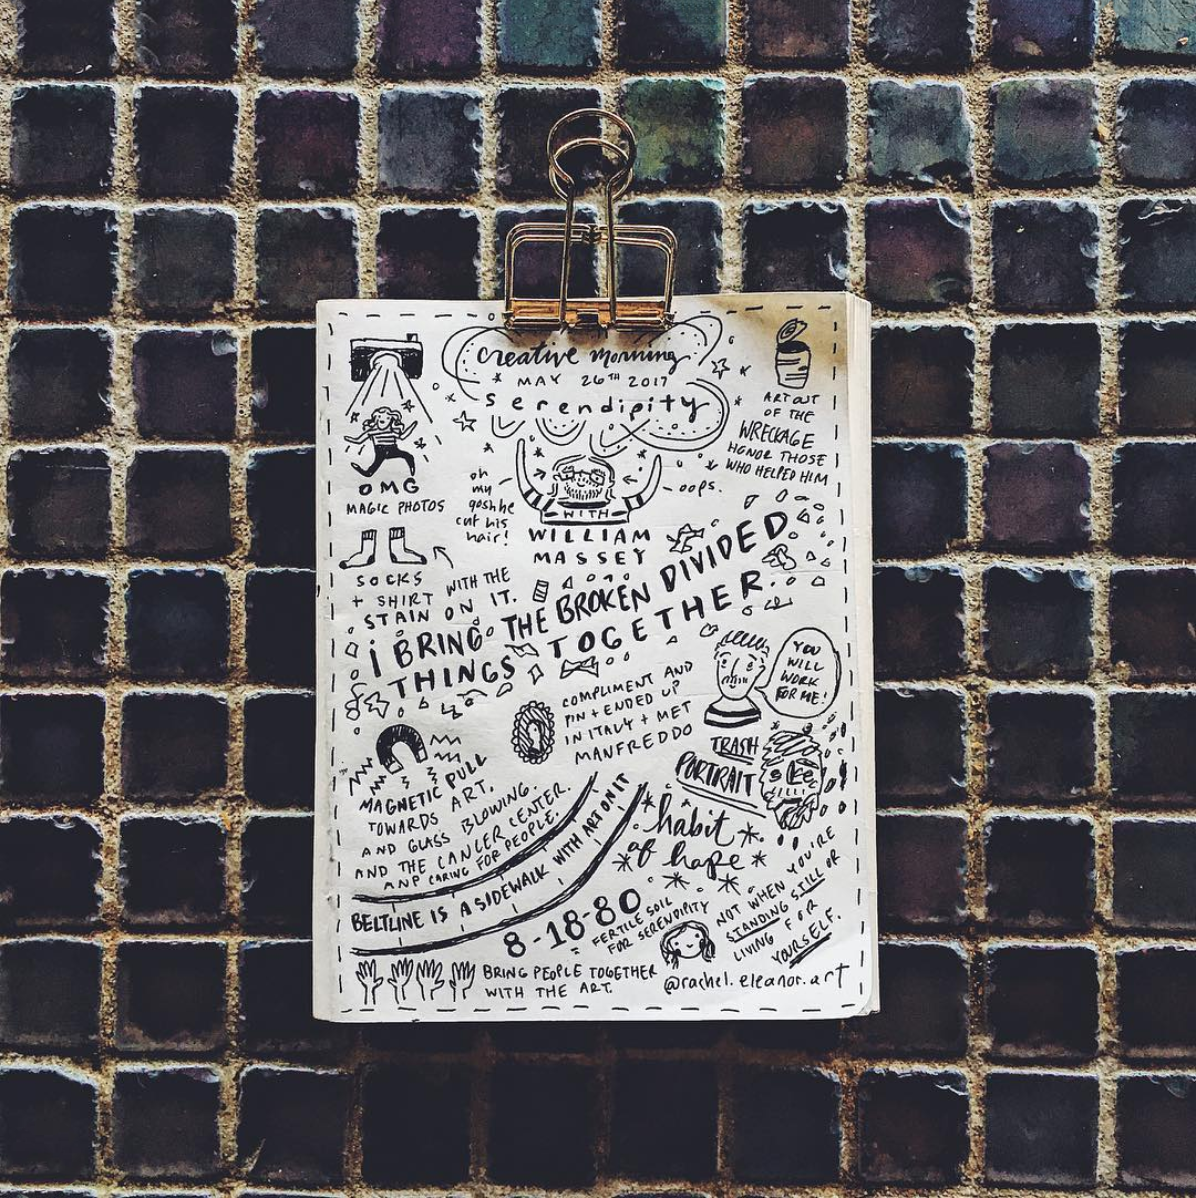 creative morning
MAY 26TH 2017
serendipity
OMG
MAGIC PHOTOS
oh
my
gosh he
cut his
hair!
oops.
WITH
WILLIAM
MASSEY
ART OUT
OF THE
WRECKAGE
HONOR THOSE
WHO HELPED HIM
SOCKS
+ SHIRT WITH THE
STAIN ON IT.
i BRING THE BROKEN DIVIDED
THINGS TOGETHER.
COMPLIMENT AND
PIN + ENDED UP
IN ITALY + MET
MANFREDDO
YOU
WILL
WORK
FOR ME!
TRASH
PORTRAIT
MAGNETIC PULL
TOWARDS ART.
AND GLASS BLOWING.
AND THE CANCER CENTER.
AND CARING FOR PEOPLE.
BELTLINE IS A SIDEWALK WITH ART ON IT
habit
of hope
8-18-80
FERTILE SOIL
FOR SERENDIPITY
NOT WHEN YOU'RE
STANDING STILL OR
LIVING FOR
YOURSELF.
BRING PEOPLE TOGETHER
WITH THE ART.
@rachel.eleanor.art